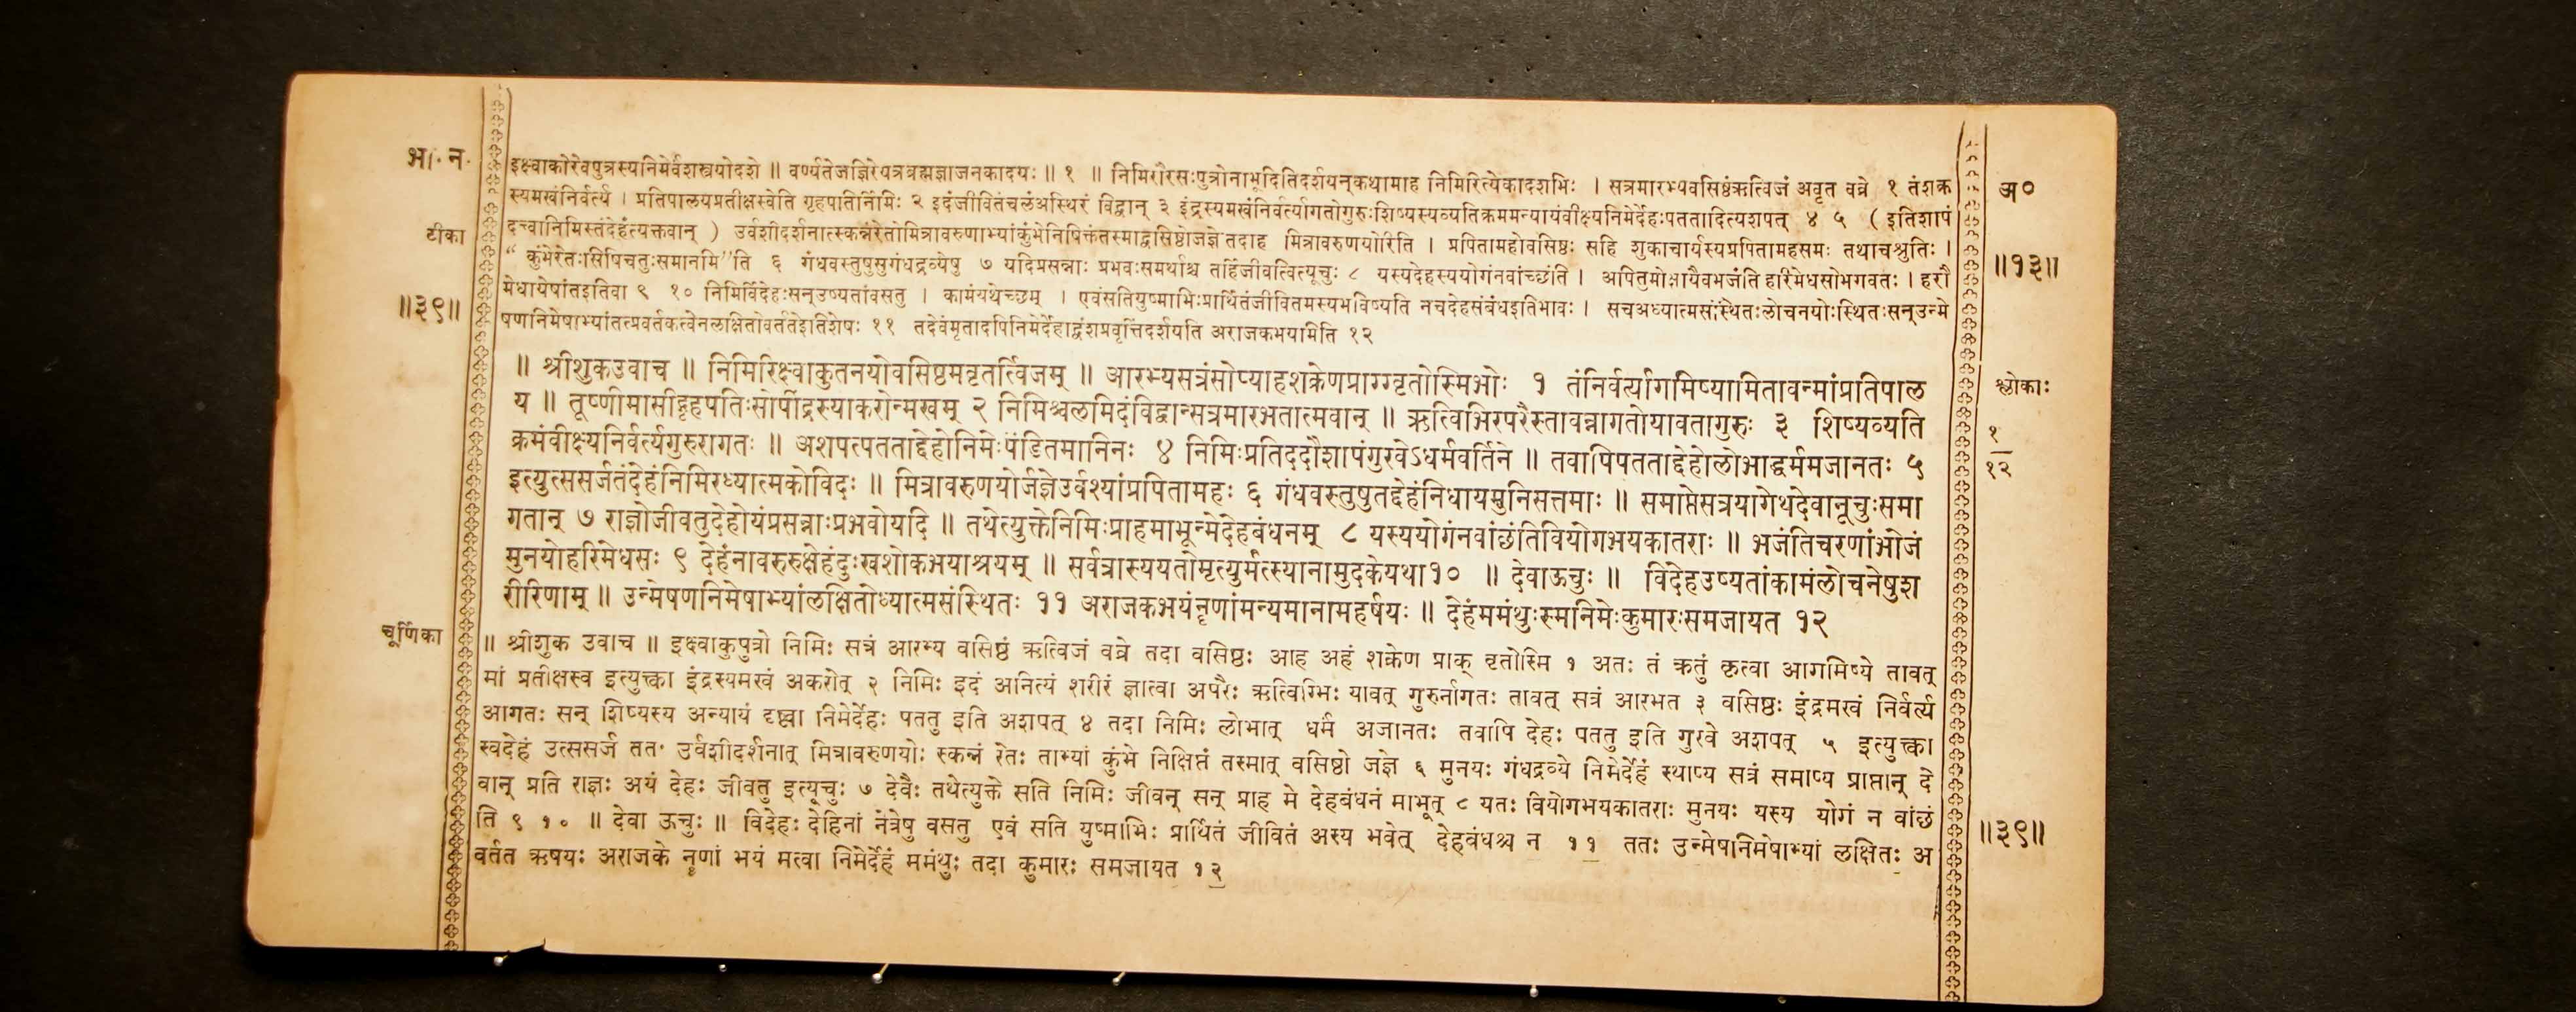 भा. न.
इक्ष्वाकोरेवपुत्रस्यनिमेर्वंशस्त्रयोदशे ॥ वर्ण्यतेजज्ञिरेयत्रब्रह्मज्ञाजनकादयः ॥ १ ॥ निमिरौरसःपुत्रोनाभूदितिदर्शयन्कथामाह निमिरित्येकादशभिः । सत्रमारभ्यवसिष्ठंऋत्विजं अवृत वव्रे १ तंशक्र
अ०
स्यमखंनिर्वर्त्य । प्रतिपालयप्रतीक्षस्वेति गृहपतिर्निमिः २ इदंजीवितंचलंअस्थिरं विद्वान् ३ इंद्रस्यमखंनिर्वर्त्यागतोगुरुःशिष्यस्यव्यतिक्रममन्यायंवीक्ष्यनिमेर्देहःपततादित्यशपत् ४ ५ ( इतिशापं
टीका
दत्त्वानिमिस्तंदेहंत्यक्तवान् ) उर्वशीदर्शनात्स्कन्नंरेतोमित्रावरुणाभ्यांकुंभेनिषिक्तंतस्माद्वसिष्ठोजज्ञे तदाह मित्रावरुणयोरिति । प्रपितामहोवसिष्ठः सहि शुकाचार्यस्यप्रपितामहसमः तथाचश्रुतिः ।
“ कुंभेरेतःसिषिचतुःसमानमि”ति ६ गंधवस्तुषुसुगंधद्रव्येषु ७ यदिप्रसन्नाः प्रभवःसमर्थाश्च तर्हिजीवत्वित्यूचुः ८ यस्यदेहस्ययोगंनवांच्छंति । अपितुमोक्षायैवभजंति हरिमेधसोभगवतः । हरौ
॥१३॥
मेधायेषांतइतिवा ९ १० निमिर्विदेहःसन्उष्यतांवसतु । कामंयथेच्छम् । एवंसतियुष्माभिःप्रार्थितंजीवितमस्यभविष्यति नचदेहसंबंधइतिभावः । सचअध्यात्मसंस्थितःलोचनयोःस्थितःसन्उन्मे
॥३९॥
षणनिमेषाभ्यांतत्प्रवर्तकत्वेनलक्षितोवर्ततइतिशेषः ११ तदेवंमृतादपिनिमेर्देहाद्वंशप्रवृत्तिंदर्शयति अराजकभयमिति १२
॥ श्रीशुकउवाच ॥ निमिरिक्ष्वाकुतनयोवसिष्ठमवृतर्त्विजम् ॥ आरभ्यसत्रंसोप्याहशक्रेणप्राग्वृतोस्मिभोः १ तंनिर्वर्त्यागमिष्यामितावन्मांप्रतिपाल
श्लोकाः
य ॥ तूष्णीमासीद्गृहपतिःसोपींद्रस्याकरोन्मखम् २ निमिश्चलमिदंविद्वान्सत्रमारभतात्मवान् ॥ ऋत्विग्भिरपरैस्तावन्नागतोयावतागुरुः ३ शिष्यव्यति
१
क्रमंवीक्ष्यनिर्वर्त्यगुरुरागतः ॥ अशपत्पतताद्देहोनिमेःपंडितमानिनः ४ निमिःप्रतिददौशापंगुरवेऽधर्मवर्तिने ॥ तवापिपतताद्देहोलोभाद्धर्ममजानतः ५
१२
इत्युत्ससर्जतंदेहंनिमिरध्यात्मकोविदः ॥ मित्रावरुणयोर्जज्ञेउर्वश्यांप्रपितामहः ६ गंधवस्तुषुतद्देहंनिधायमुनिसत्तमाः ॥ समाप्तेसत्रयागेथदेवानूचुःसमा
गतान् ७ राज्ञोजीवतुदेहोयंप्रसन्नाःप्रभवोयदि ॥ तथेत्युक्तेनिमिःप्राहमाभून्मेदेहबंधनम् ८ यस्ययोगंनवांछंतिवियोगभयकातराः ॥ भजंतिचरणांभोजं
मुनयोहरिमेधसः ९ देहंनावरुरुक्षेहंदुःखशोकभयाश्रयम् ॥ सर्वत्रास्ययतोमृत्युर्मत्स्यानामुदकेयथा१० ॥ देवाऊचुः ॥ विदेहउष्यतांकामंलोचनेषुश
रीरिणाम् ॥ उन्मेषणनिमेषाभ्यांलक्षितोध्यात्मसंस्थितः ११ अराजकभयंनॄणांमन्यमानामहर्षयः ॥ देहंममंथुःस्मनिमेःकुमारःसमजायत १२
चूर्णिका
॥ श्रीशुक उवाच ॥ इक्ष्वाकुपुत्रो निमिः सत्रं आरभ्य वसिष्ठं ऋत्विजं वव्रे तदा वसिष्ठः आह अहं शक्रेण प्राक् वृतोस्मि १ अतः तं क्रतुं कृत्वा आगमिष्ये तावत्
मां प्रतीक्षस्व इत्युक्त्वा इंद्रस्यमखं अकरोत् २ निमिः इदं अनित्यं शरीरं ज्ञात्वा अपरैः ऋत्विग्भिः यावत् गुरुर्नागतः तावत् सत्रं आरभत ३ वसिष्ठः इंद्रमखं निर्वर्त्य
आगतः सन् शिष्यस्य अन्यायं दृष्ट्वा निमेर्देहः पततु इति अशपत् ४ तदा निमिः लोभात् धर्मं अजानतः तवापि देहः पततु इति गुरवे अशपत् ५ इत्युक्त्वा
स्वदेहं उत्ससर्ज तत॰ उर्वशीदर्शनात् मित्रावरुणयोः स्कन्नं रेतः ताभ्यां कुंभे निक्षिप्तं तस्मात् वसिष्ठो जज्ञे ६ मुनयः गंधद्रव्ये निमेर्देहं स्थाप्य सत्रं समाप्य प्राप्तान् दे
वान् प्रति राज्ञः अयं देहः जीवतु इत्यूचुः ७ देवैः तथेत्युक्ते सति निमिः जीवन् सन् प्राह मे देहबंधनं माभूत् ८ यतः वियोगभयकातराः मुनयः यस्य योगं न वांछं
ति ९ १० ॥ देवा ऊचुः ॥ विदेहः देहिनां नेत्रेषु वसतु एवं सति युष्माभिः प्रार्थितं जीवितं अस्य भवेत् देहबंधश्च न ११ ततः उन्मेषनिमेषाभ्यां लक्षितः अ
॥३९॥
वर्तत ऋषयः अराजके नॄणां भयं मत्वा निमेर्देहं ममंथुः तदा कुमारः समजायत १२